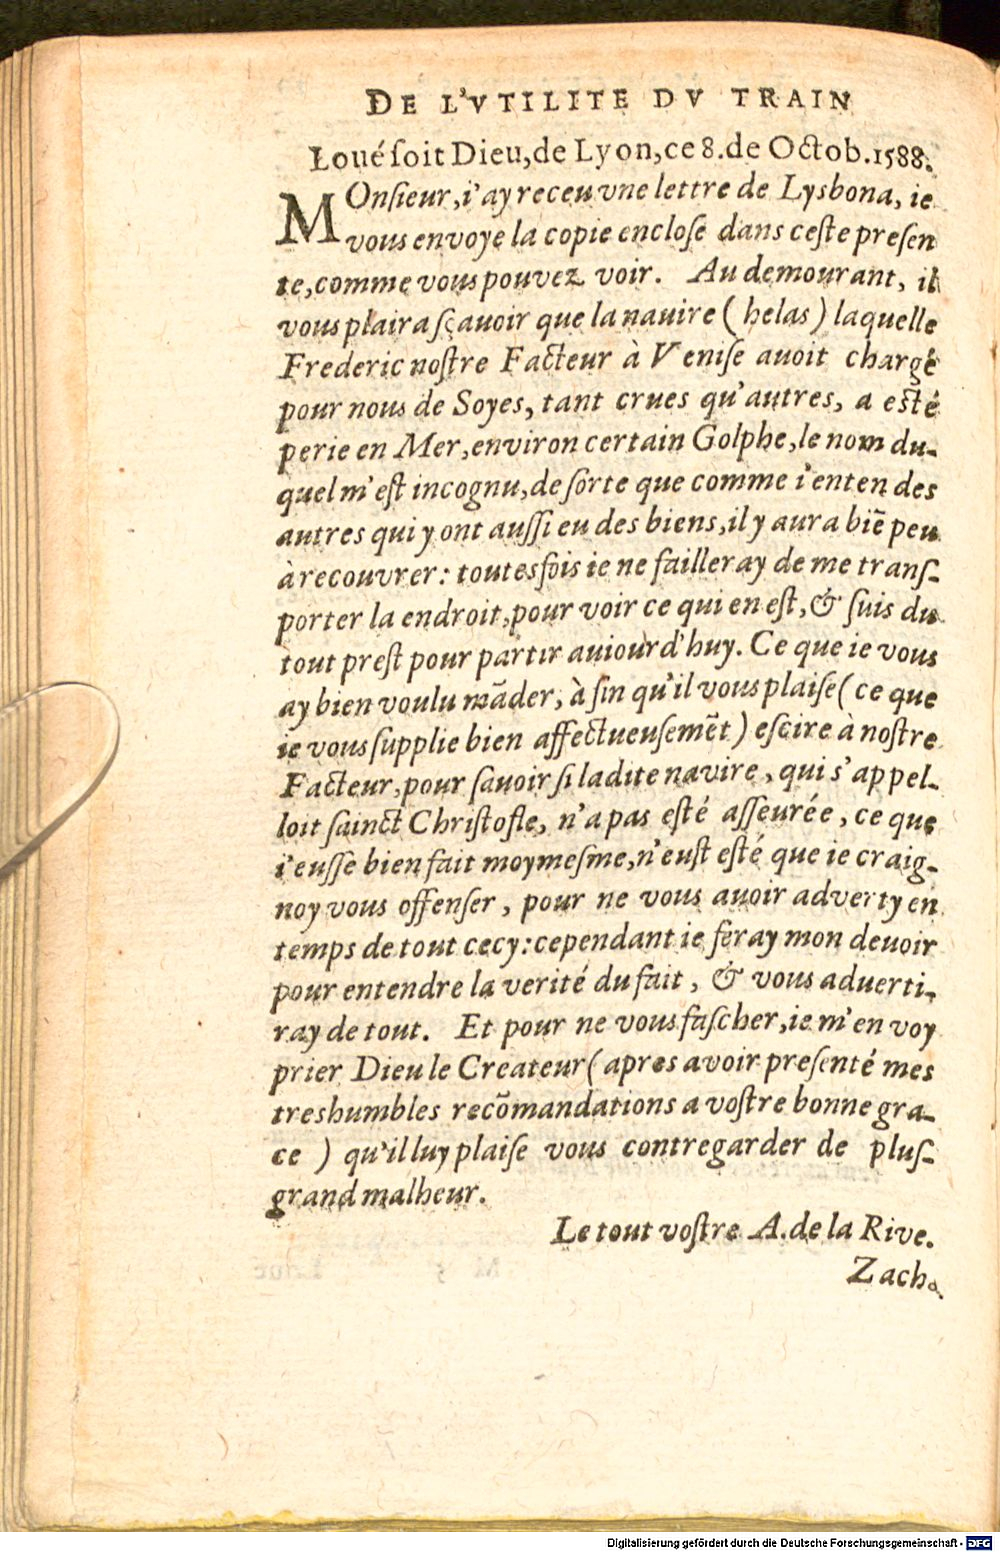 DE L'VTILITE DV TRAIN
Loué ſoit Dieu, de Lyon, ce 8. de Octob. 1588.
MOnſieur, i'ay receu vne lettre de Lysbona, ie
vous envoye la copie encloſe dans ceſte preſen
te, comme vous pouvez voir. Au demourant, il
vous plaira ſçavoir que la nauire (helas) laquelle
Frederic noſtre Facteur à Veniſe auoit chargé
pour nous de Soyes, tant crues qu'autres, a eſté
perie en Mer, environ certain Golphe, le nom du-
quel m'eſt incognu, de ſorte que comme i'enten des
autres qui y ont auſſi eu des biens, il y aura biē peu
à recouvrer: toutesfois ie ne failleray de me tranſ-
porter la endroit, pour voir ce qui en eſt, & ſuis du
tout preſt pour partir auiourd'huy. Ce que ie vous
ay bien voulu mãder, à fin qu'il vous plaiſe (ce que
ie vous ſupplie bien affectueusemēt) eſcire à noſtre
Facteur, pour ſavoir ſi ladite navire, qui s'appel-
loit ſainct Chriſtofle, n'a pas eſté aſſeurée, ce que
i'euſſe bien fait moymeſme, n'euſt eſté que ie craig-
noy vous offenſer, pour ne vous auoir adverty en
temps de tout cecy: cependant ie feray mon deuoir
pour entendre la verité du fait, & vous aduerti-
ray de tout. Et pour ne vous faſcher, ie m'en voy
prier Dieu le Createur (apres avoir preſenté mes
treshumbles recõmandations a voſtre bonne gra-
ce) qu'il luy plaiſe vous contregarder de pluſ-
grand malheur.
Le tout voſtre A. de la Rive.
Zach.
Digitalisierung gefördert durch die Deutsche Forschungsgemeinschaft - DFG